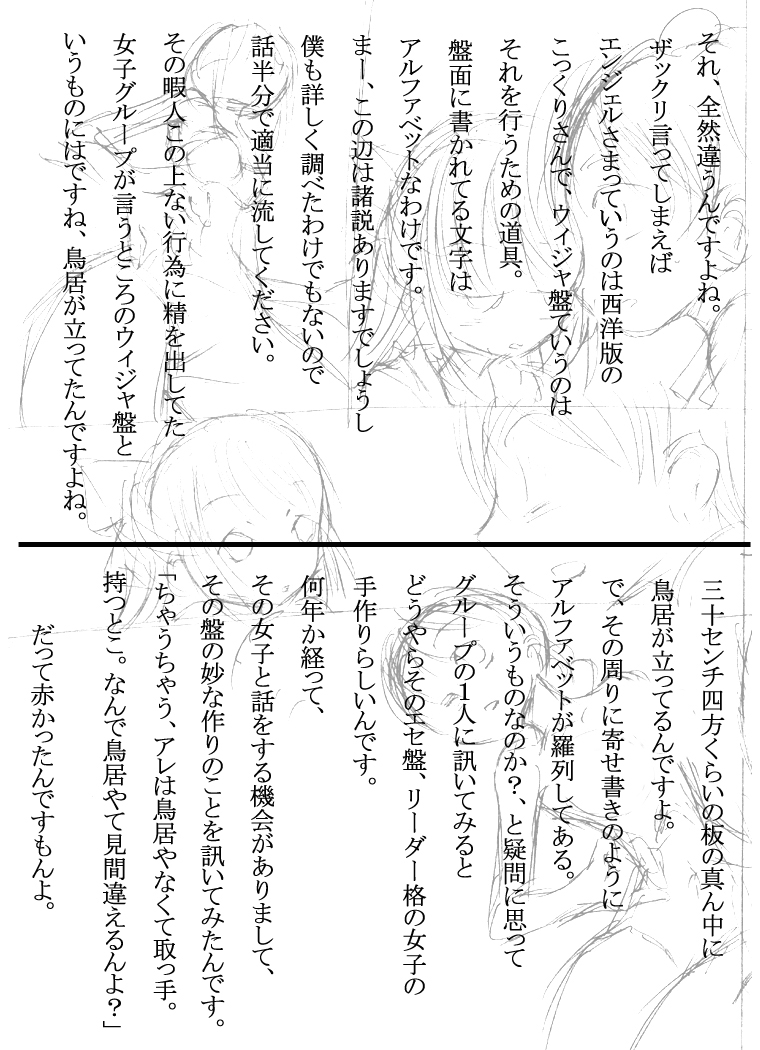 それ、全然違うんですよね。
ザックリ言ってしまえば
エンジェルさまっていうのは西洋版の
こっくりさんで、ウィジャ盤ていうのは
それを行うための道具。
盤面に書かれてる文字は
アルファベットなわけです。
まー、この辺は諸説ありますでしょうし
僕も詳しく調べたわけでもないので
話半分で適当に流してください。
その暇人この上ない行為に精を出してた
女子グループが言うところのウィジャ盤と
いうものにはですね、鳥居が立ってたんですよね。
三十センチ四方くらいの板の真ん中に
鳥居が立ってるんですよ。
で、その周りに寄せ書きのように
アルファベットが羅列してある。
そういうものなのか？、と疑問に思って
グループの1人に訊いてみると
どうやらそのエセ盤、リーダー格の女子の
手作りらしいんです。
何年か経って、
その女子と話をする機会がありまして、
その盤の妙な作りのことを訊いてみたんです。
「ちゃうちゃう、アレは鳥居やなくて取っ手。
持つとこ。なんで鳥居やて見間違えるんよ？」
だって赤かったんですもんよ。